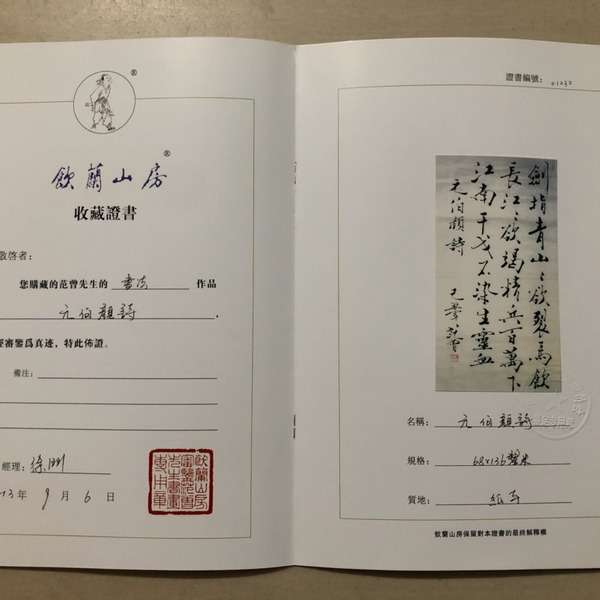 ®
飲蘭山房®
收藏證書
敬啓者：
您購藏的范曾先生的 書法 作品
元伯顏詩 ，
經審鑒爲真迹，特此佈證。
備注：
經理：
13年 9 月 6 日
飲蘭山房
審鑒范曾
先生書畫
專用章
證書編號：01230
劍指青山山欲裂馬飲
長江江欲竭精兵百萬下
江南干戈不染生靈血
元伯顏詩
名稱：元伯顏詩
規格：68x136釐米
質地：紙本
飲蘭山房保留對本證書的最終解釋權